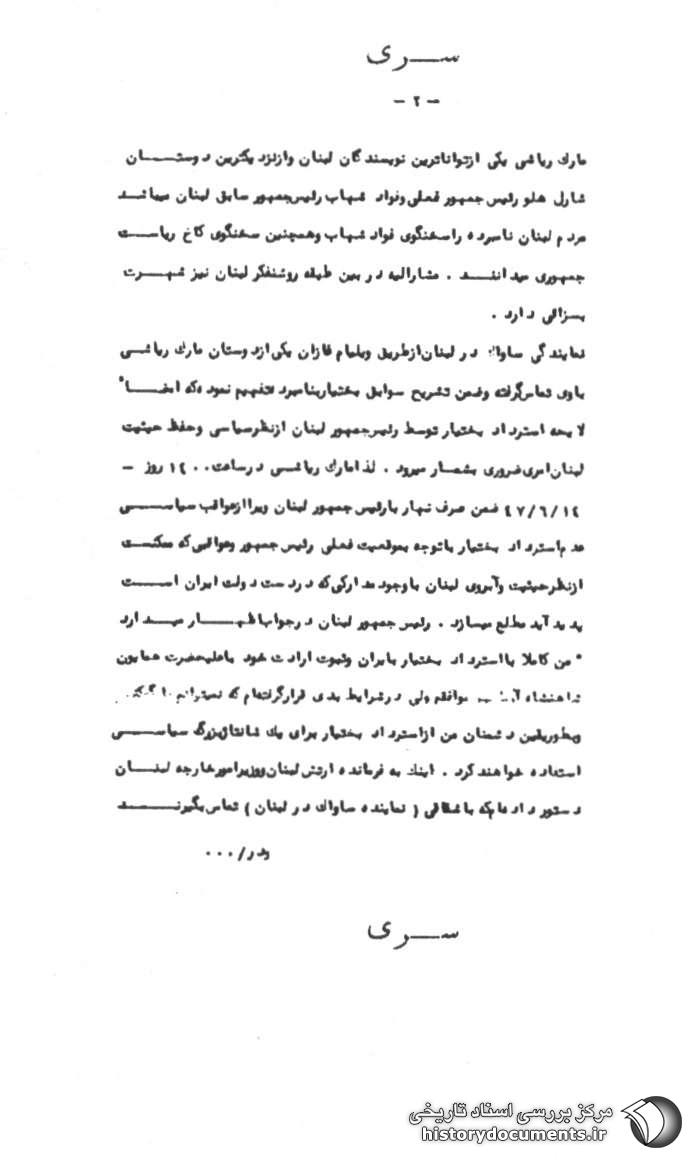 ســری
- ۲ -
مارك ریاشی یکی ازتواناترین نویسندگان لبنان وازنزدیکترین دوستـــان
شارل هلو رئیس جمهور فعلی وفواد شهاب رئیس‌جمهور سابق لبنان میباشــد
مردم لبنان نامبرده راسخنگوی فواد شهاب وهمچنین سخنگوی کاخ ریاســت
جمهوری میداننــد . مشارالیه در بین طبقه روشنفکر لبنان نیز شهــرت
بسزائی دارد .
نمایندگی ساواك در لبنان‌ازطریق ویلیام فازان یکی‌ازدوستان مارك ریاشــی
باوی تماس‌گرفته وضمن تشریح سوابق بختیاربنامبرده تفهیم نموده‌که امضــاء
لایحه استرداد بختیار توسط رئیس‌جمهور لبنان ازنظرسیاسی وحفظ حیثیت
لبنان‌امری‌ضروری بشمار میرود . لذامارك ریاشــی درساعت ۱۲۰۰ روز -
۴۷/۶/۱۲ ضمن صرف نهار بارئیس جمهور لبنان ویراازعواقب سیاســی
عدم‌استرداد بختیار باتوجه بموقعیت فعلی رئیس جمهور وعواقبی‌که ممکنست
ازنظرحیثیت وآبروی لبنان باوجود مدارکی‌که دردست دولت ایران اســت
پدیدآید مطلع میسازد . رئیس جمهور لبنان درجواب‌اظهــار میــدارد
" من کاملا بااسترداد بختیار بایران وثبوت ارادت خود باعلیحضرت همایون
شاهنشاه موافقم ولی درشرایط بدی قرارگرفته‌ام که نمیتوانم
وبطوریقین دشمنان من ازاسترداد بختیار برای یك شانتاژبزرگ سیاســی
استفاده خواهندکرد . اینك به فرمانده ارتش لبنان‌ووزیرامورخارجه لبنــان
دستور داده‌ام‌که با (نماینده ساواك در لبنان) تماس‌بگیرنــد
ودر/...
ســری
مرکز بررسی اسناد تاریخی
historydocuments.ir